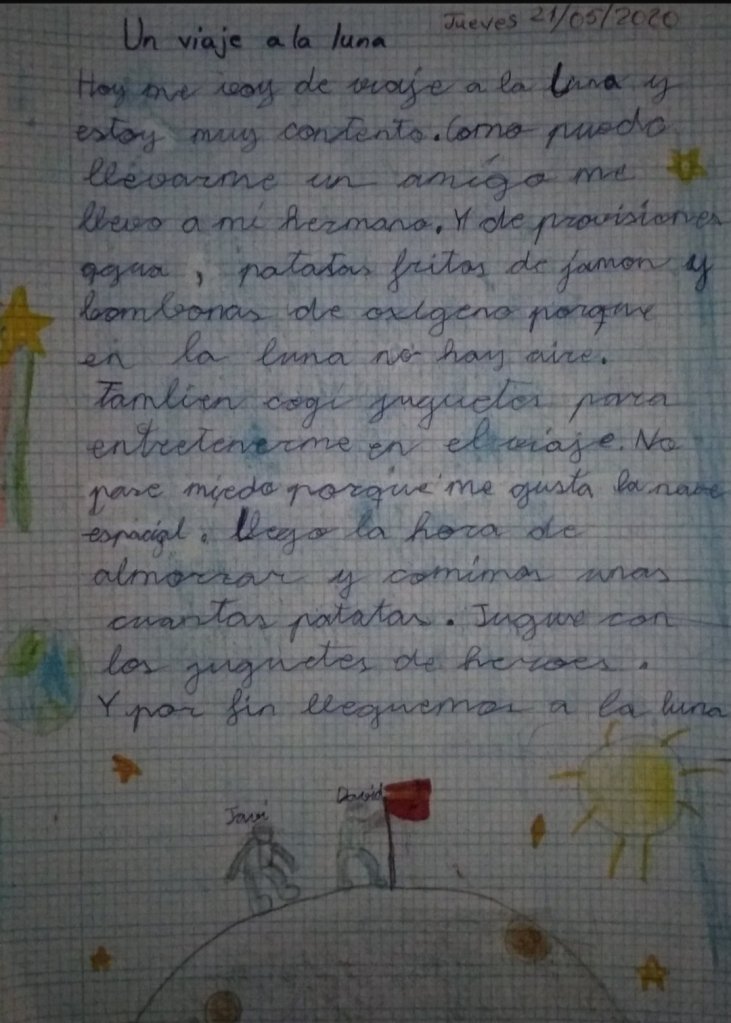 Jueves 21/05/2020
Un viaje a la luna
Hoy me voy de viaje a la Luna y
estoy muy contento. Como puedo
llevarme un amigo me
llevo a mi hermano. Y de provisiones
agua, patatas fritas de jamon y
bombonas de oxigeno porque
en la luna no hay aire.
Tambien cogi juguetes para
entretenerme en el viaje. No
pase miedo porque me gusta la nave
espacial. Llego la hora de
almorzar y comimos unas
cuantas patatas. Jugue con
los juguetes de heroes.
Y por fin lleguemos a la luna
Javi
David